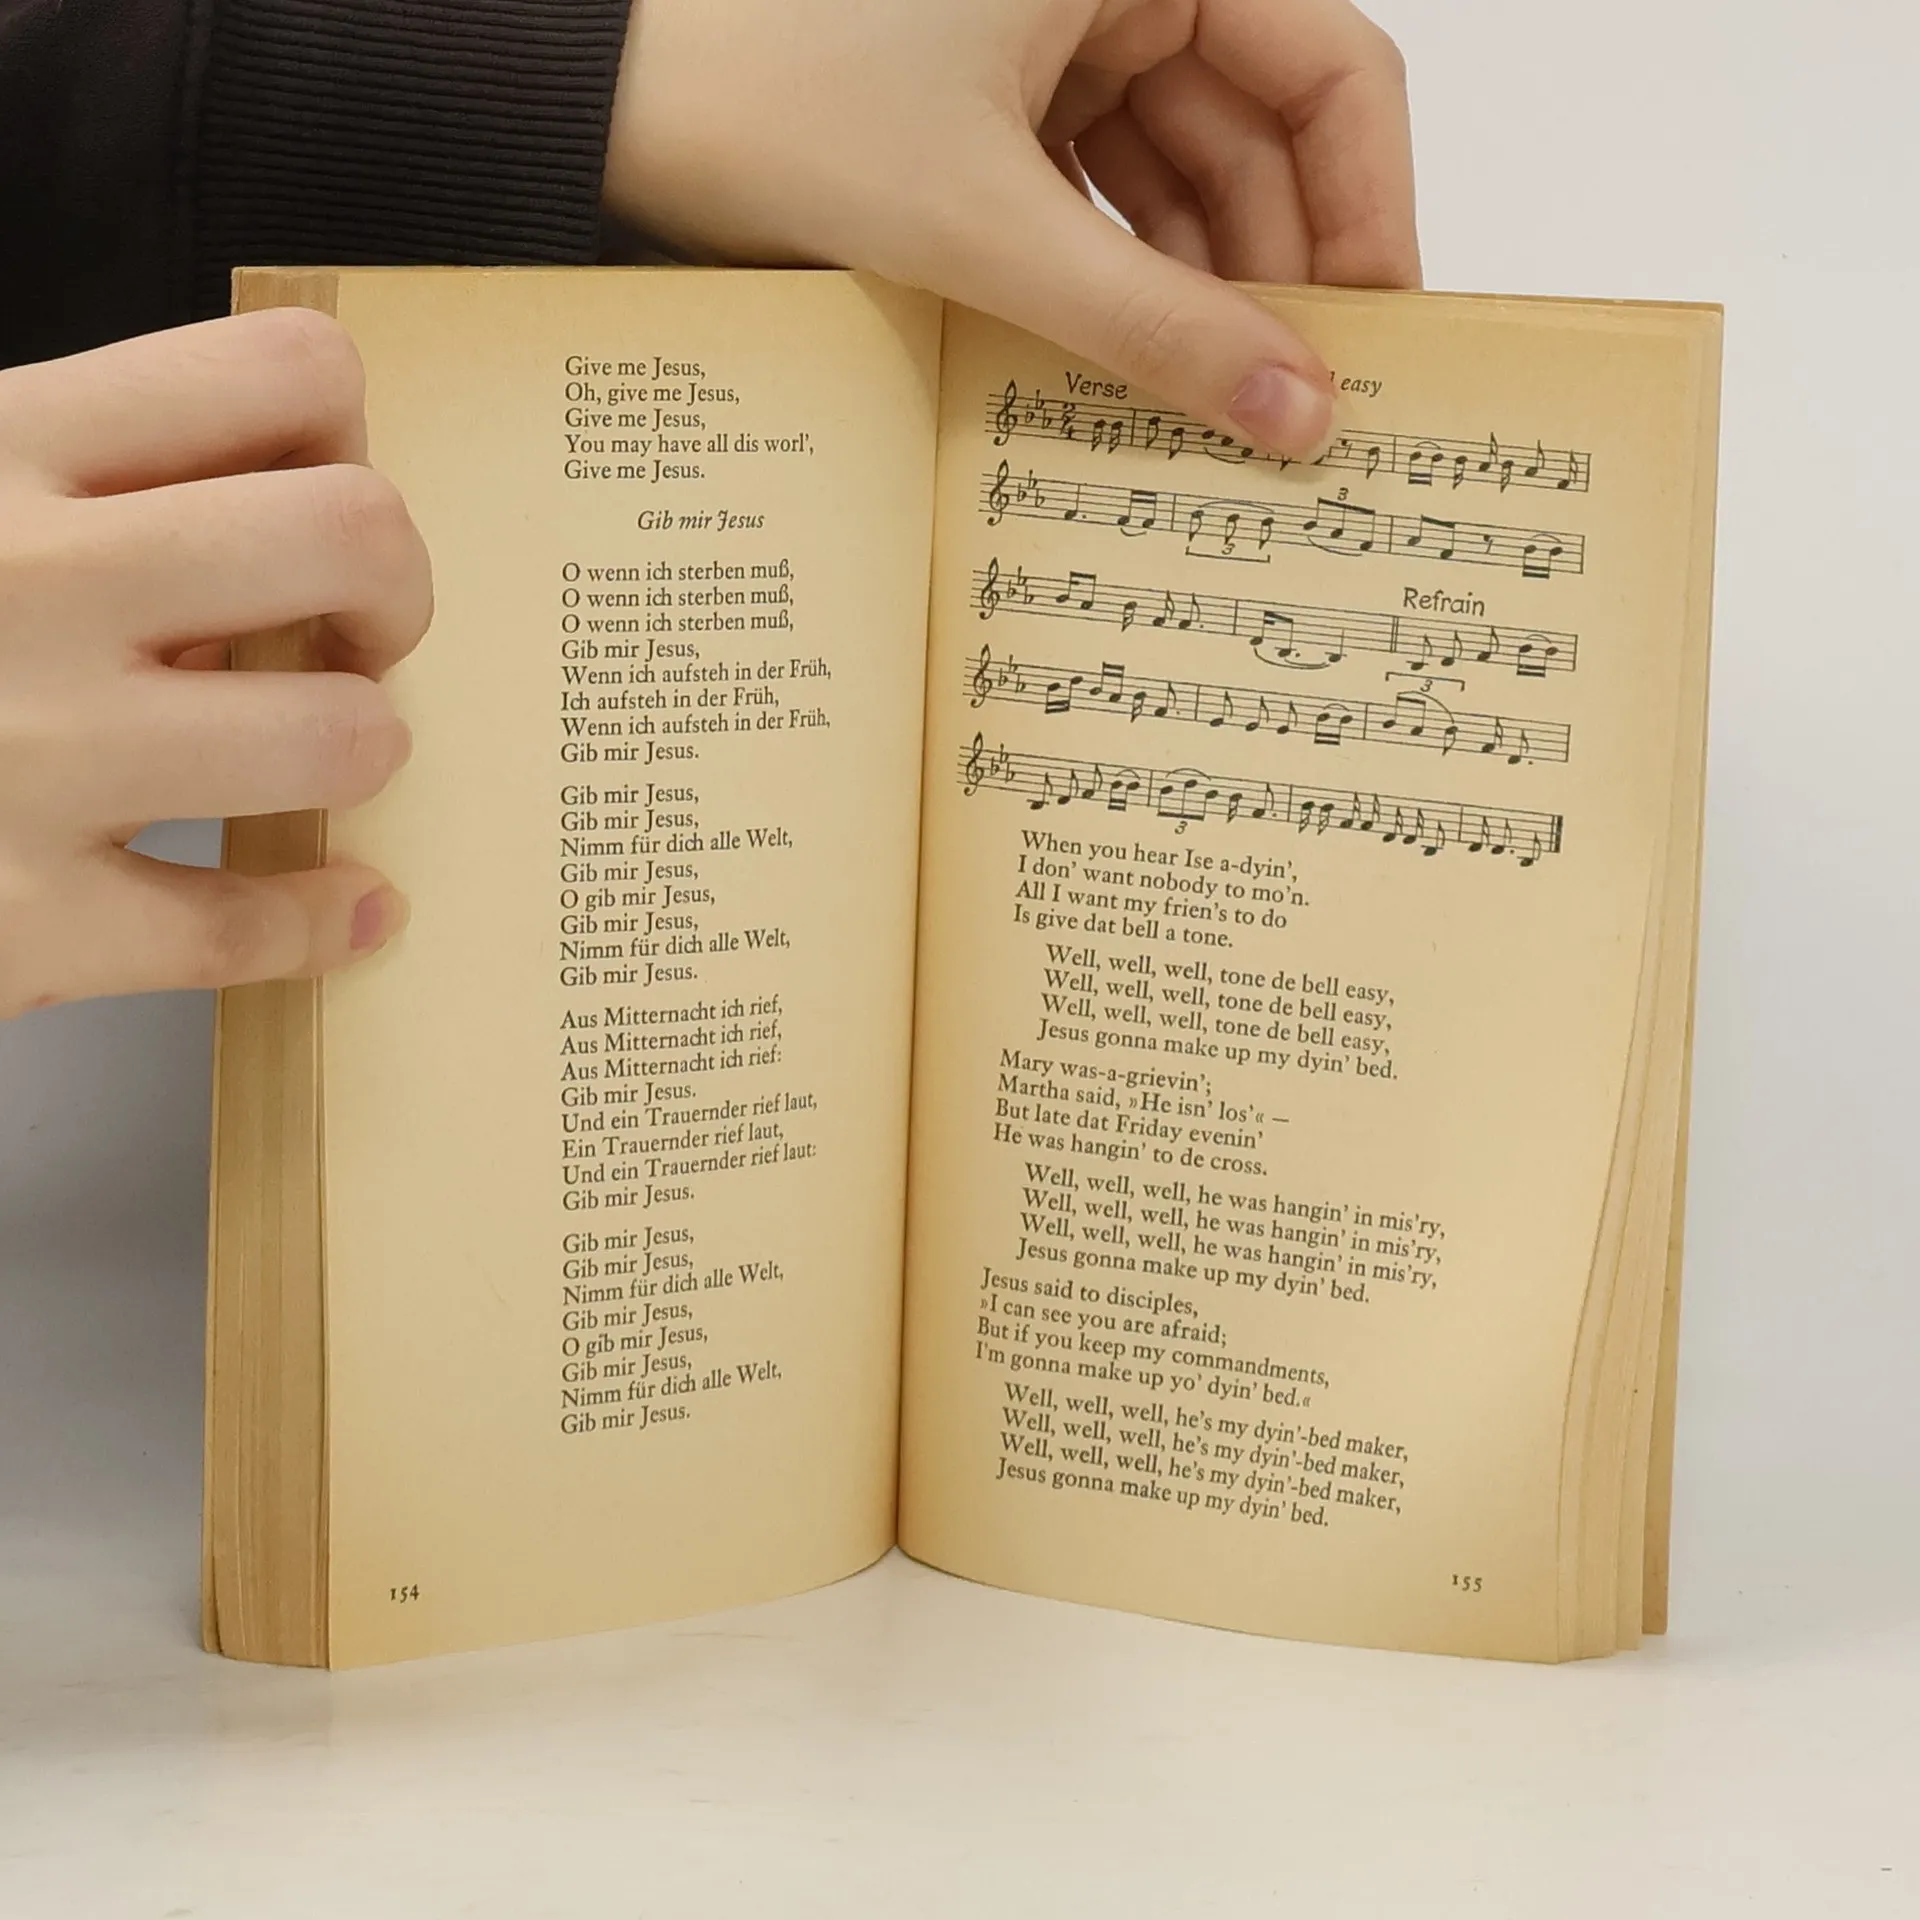 Give me Jesus,
Oh, give me Jesus,
Give me Jesus,
You may have all dis worl',
Give me Jesus.
Gib mir Jesus
O wenn ich sterben muß,
O wenn ich sterben muß,
O wenn ich sterben muß,
Gib mir Jesus,
Wenn ich aufsteh in der Früh,
Ich aufsteh in der Früh,
Wenn ich aufsteh in der Früh,
Gib mir Jesus.
Gib mir Jesus,
Gib mir Jesus,
Nimm für dich alle Welt,
Gib mir Jesus,
O gib mir Jesus,
Gib mir Jesus,
Nimm für dich alle Welt,
Gib mir Jesus.
Aus Mitternacht ich rief,
Aus Mitternacht ich rief,
Aus Mitternacht ich rief:
Gib mir Jesus.
Und ein Trauernder rief laut,
Ein Trauernder rief laut,
Und ein Trauernder rief laut:
Gib mir Jesus.
Gib mir Jesus,
Gib mir Jesus,
Nimm für dich alle Welt,
Gib mir Jesus,
O gib mir Jesus,
Gib mir Jesus,
Nimm für dich alle Welt,
Gib mir Jesus.
154
easy
Verse
3
3
Refrain
3
3
When you hear Ise a-dyin',
I don' want nobody to mo'n.
All I want my frien's to do
Is give dat bell a tone.
Well, well, well, tone de bell easy,
Well, well, well, tone de bell easy,
Well, well, well, tone de bell easy,
Jesus gonna make up my dyin' bed.
Mary was-a-grievin';
Martha said, »He isn' los'« —
But late dat Friday evenin'
He was hangin' to de cross.
Well, well, well, he was hangin' in mis'ry,
Well, well, well, he was hangin' in mis'ry,
Well, well, well, he was hangin' in mis'ry,
Jesus gonna make up my dyin' bed.
Jesus said to disciples,
»I can see you are afraid;
But if you keep my commandments,
I'm gonna make up yo' dyin' bed.«
Well, well, well, he's my dyin'-bed maker,
Well, well, well, he's my dyin'-bed maker,
Well, well, well, he's my dyin'-bed maker,
Jesus gonna make up my dyin' bed.
155